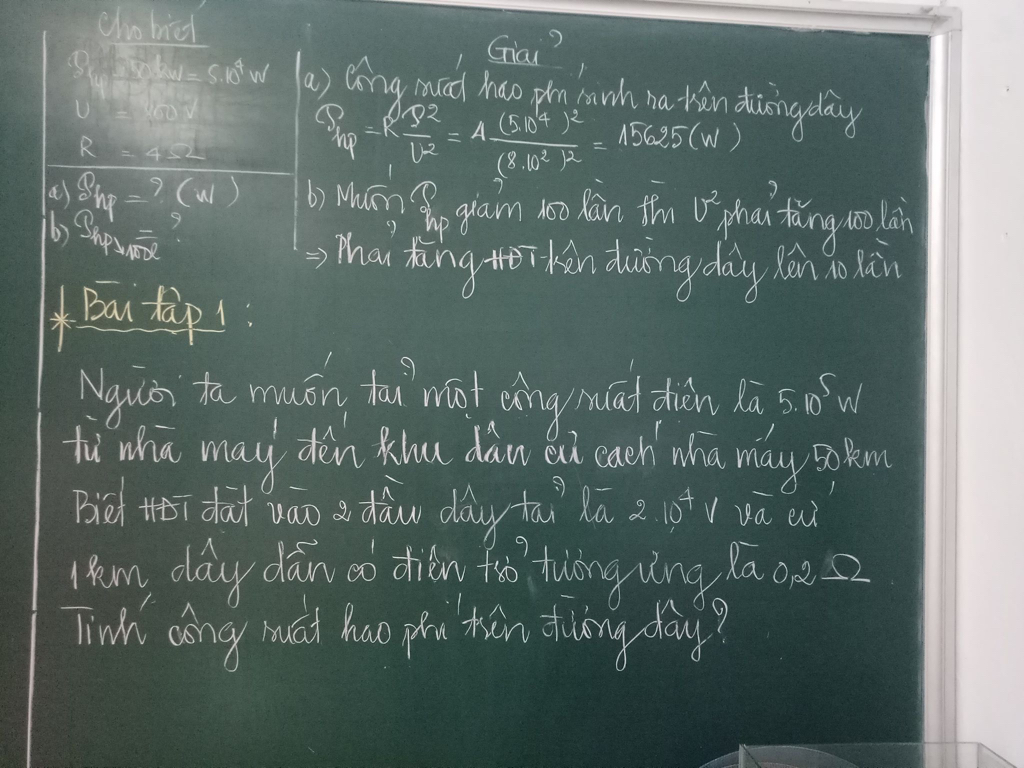 Cho biết
P = 50kW = 5.10⁴ W
U = 800 V
R = 4Ω
a) Php = ? (W)
b)
Giải
a) Công suất hao phí sinh ra trên đường dây
Php = R P²/U² = 4 (5.10⁴)²/(8.10²)² = 15625 (W)
b) Muốn Php giảm 100 lần thì U² phải tăng 100 lần
=> Phải tăng HĐT trên đường dây lên 10 lần
* Bài tập 1 :
Người ta muốn tải một công suất điện là 5.10⁵ W
từ nhà máy đến khu dân cư cách nhà máy 50km
Biết HĐT đặt vào 2 đầu dây tải là 2.10⁴ V và cứ
1km dây dẫn có điện trở tương ứng là 0,2 Ω
Tính công suất hao phí trên đường dây?